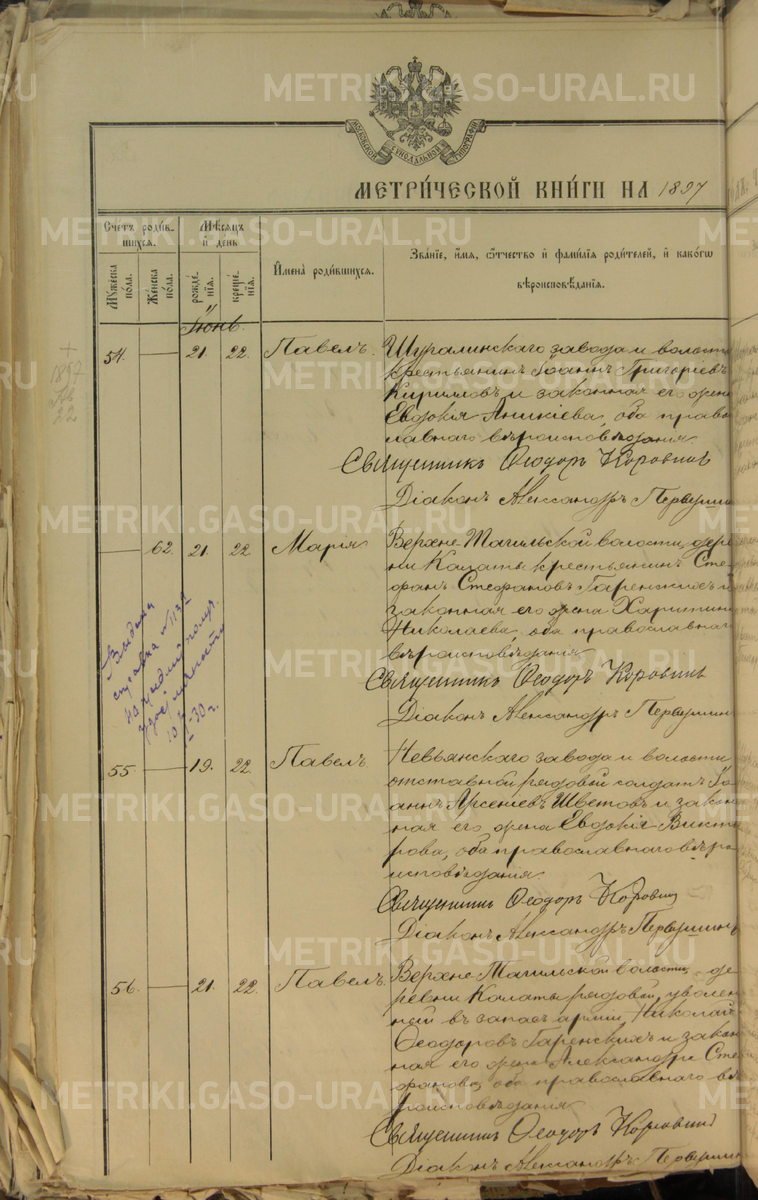 МОСКОВСКОЙ СѴНОДАЛЬНОЙ ТИПОГРАФІИ
МЕТРИ́ЧЕСКОЙ КНИ́ГИ НА 1897
Счетъ роди́вшихся.
Мѣсяцъ и день
Имена роди́вшихся.
Званіе, имя, отчество и фамилія родителей, и какогѡ
вѣроисповѣданія.
Мужеска пола.
Женска пола.
рожденія.
крещенія.
Іюнь.
54. — 21 22. Павелъ.
Шуралинскаго завода и волости
крестьянинъ Іоаннъ Григорьевъ
Кириловъ и законная его жена
Евдокія Аникіева, оба право
славнаго вѣроисповѣданія
Священникъ Ѳеодоръ Коровинъ
Діаконъ Александръ Первушинъ
+
1897
22
— 62. 21. 22. Марія
Верхне Тагильской волости, дере
вни Калаты крестьянинъ Сте
фанъ Стефановъ Гаренскихъ и
законная его жена Харитина
Николаева, оба православнаго
вѣроисповѣданія
Священникъ Ѳеодоръ Коровинъ
Діаконъ Александръ Первушинъ
Выдана
справка
на предмет получ.
30 г.
55 — 19. 22. Павелъ.
Невьянскаго завода и волости
отставной рядовой солдатъ Іо
аннъ Арсеніевъ Шветовъ и закон
ная его жена Евдокія Викто
рова, оба православнаго вѣро
исповѣданія
Священникъ Ѳеодоръ Коровинъ
Діаконъ Александръ Первушинъ
56. — 21. 22. Павелъ.
Верхне Тагильской волости, де
ревни Калаты рядовой, уволен
ной въ запасъ арміи, Николай
Ѳеодоровъ Гаренскихъ и закон
ная его жена Александра Сте
фанова, оба православнаго вѣ
роисповѣданія
Священникъ Ѳеодоръ Коровинъ
Діаконъ Александръ Первушинъ
METRIKI.GASO-URAL.RU